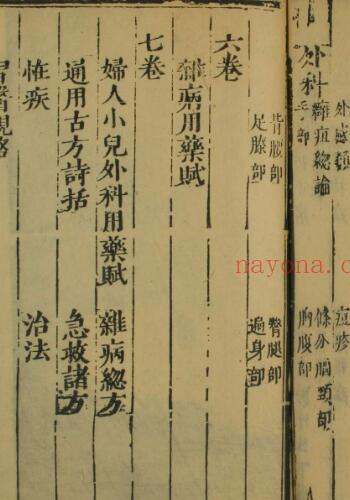 外感類
痘疹
外科
癰疽總論
手部
條分腦頸部
胸腹部
背腰部
臀腿部
足膝部
遍身部
六卷
雜病用藥賦
七卷
婦人小兒外科用藥賦
雜病總方
通用古方詩括
急救諸方
怪疾
治法
習醫規格
nayona.c